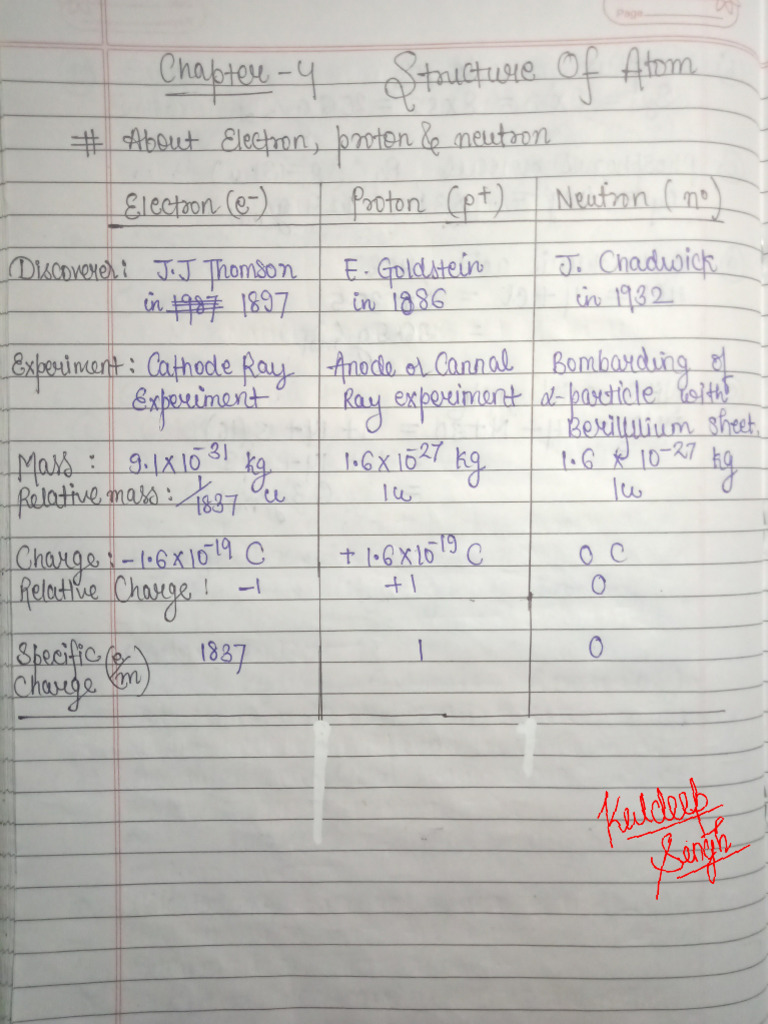 Page
Chapter-4 Structure Of Atom
# About Electron, proton & neutron
Electron (e-) Proton (p+) Neutron (n⁰)
Discoverer: J.J Thomson E. Goldstein J. Chadwick
in 1987 1897 in 1886 in 1932
Experiment: Cathode Ray Anode or Cannal Bombarding of
Experiment Ray experiment α-particle with
Berillyium sheet.
Mass: 9.1×10⁻³¹ kg 1.6×10⁻²⁷ kg 1.6 × 10⁻²⁷ kg
Relative mass: 1/1837 u 1u 1u
Charge: -1.6×10⁻¹⁹ C +1.6×10⁻¹⁹ C 0 C
Relative Charge: -1 +1 0
Specific (e/m) 1837 1 0
Charge
Kuldeep
Singh